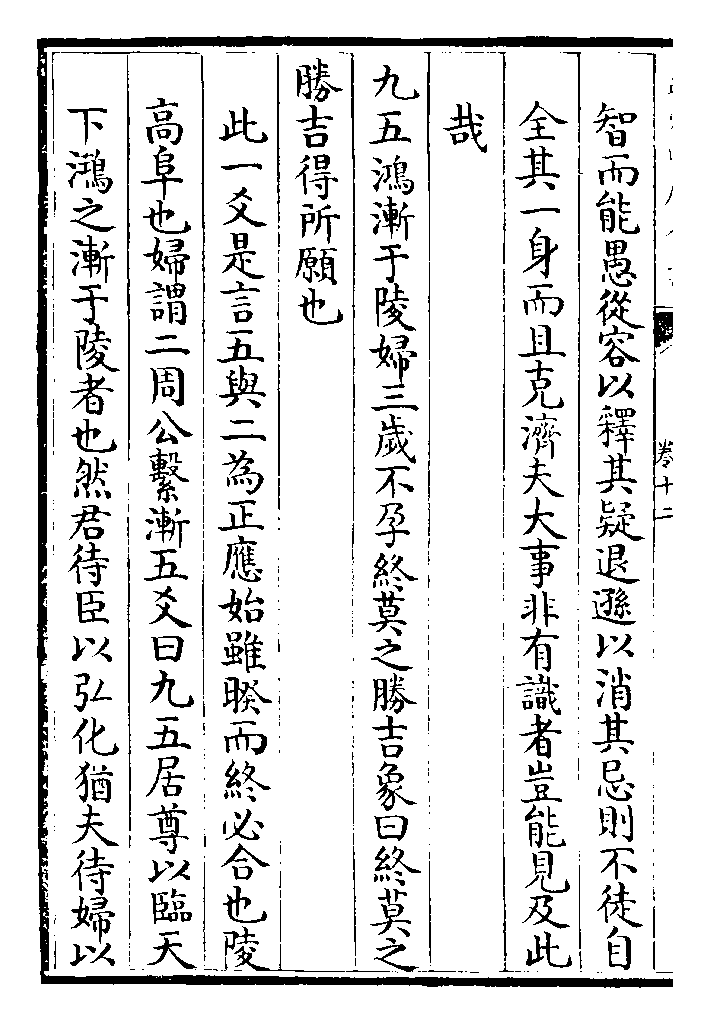 智而能愚從容以釋其疑退遜以消其忌則不徒自
全其一身而且克濟夫大事非有識者豈能見及此
哉
九五鴻漸于陵婦三歲不孕終莫之勝吉象曰終莫之
勝吉得所願也
此一爻是言五與二為正應始雖暌而終必合也陵
高阜也婦謂二周公繫漸五爻曰九五居尊以臨天
下鴻之漸于陵者也然君待臣以弘化猶夫待婦以
卷十二